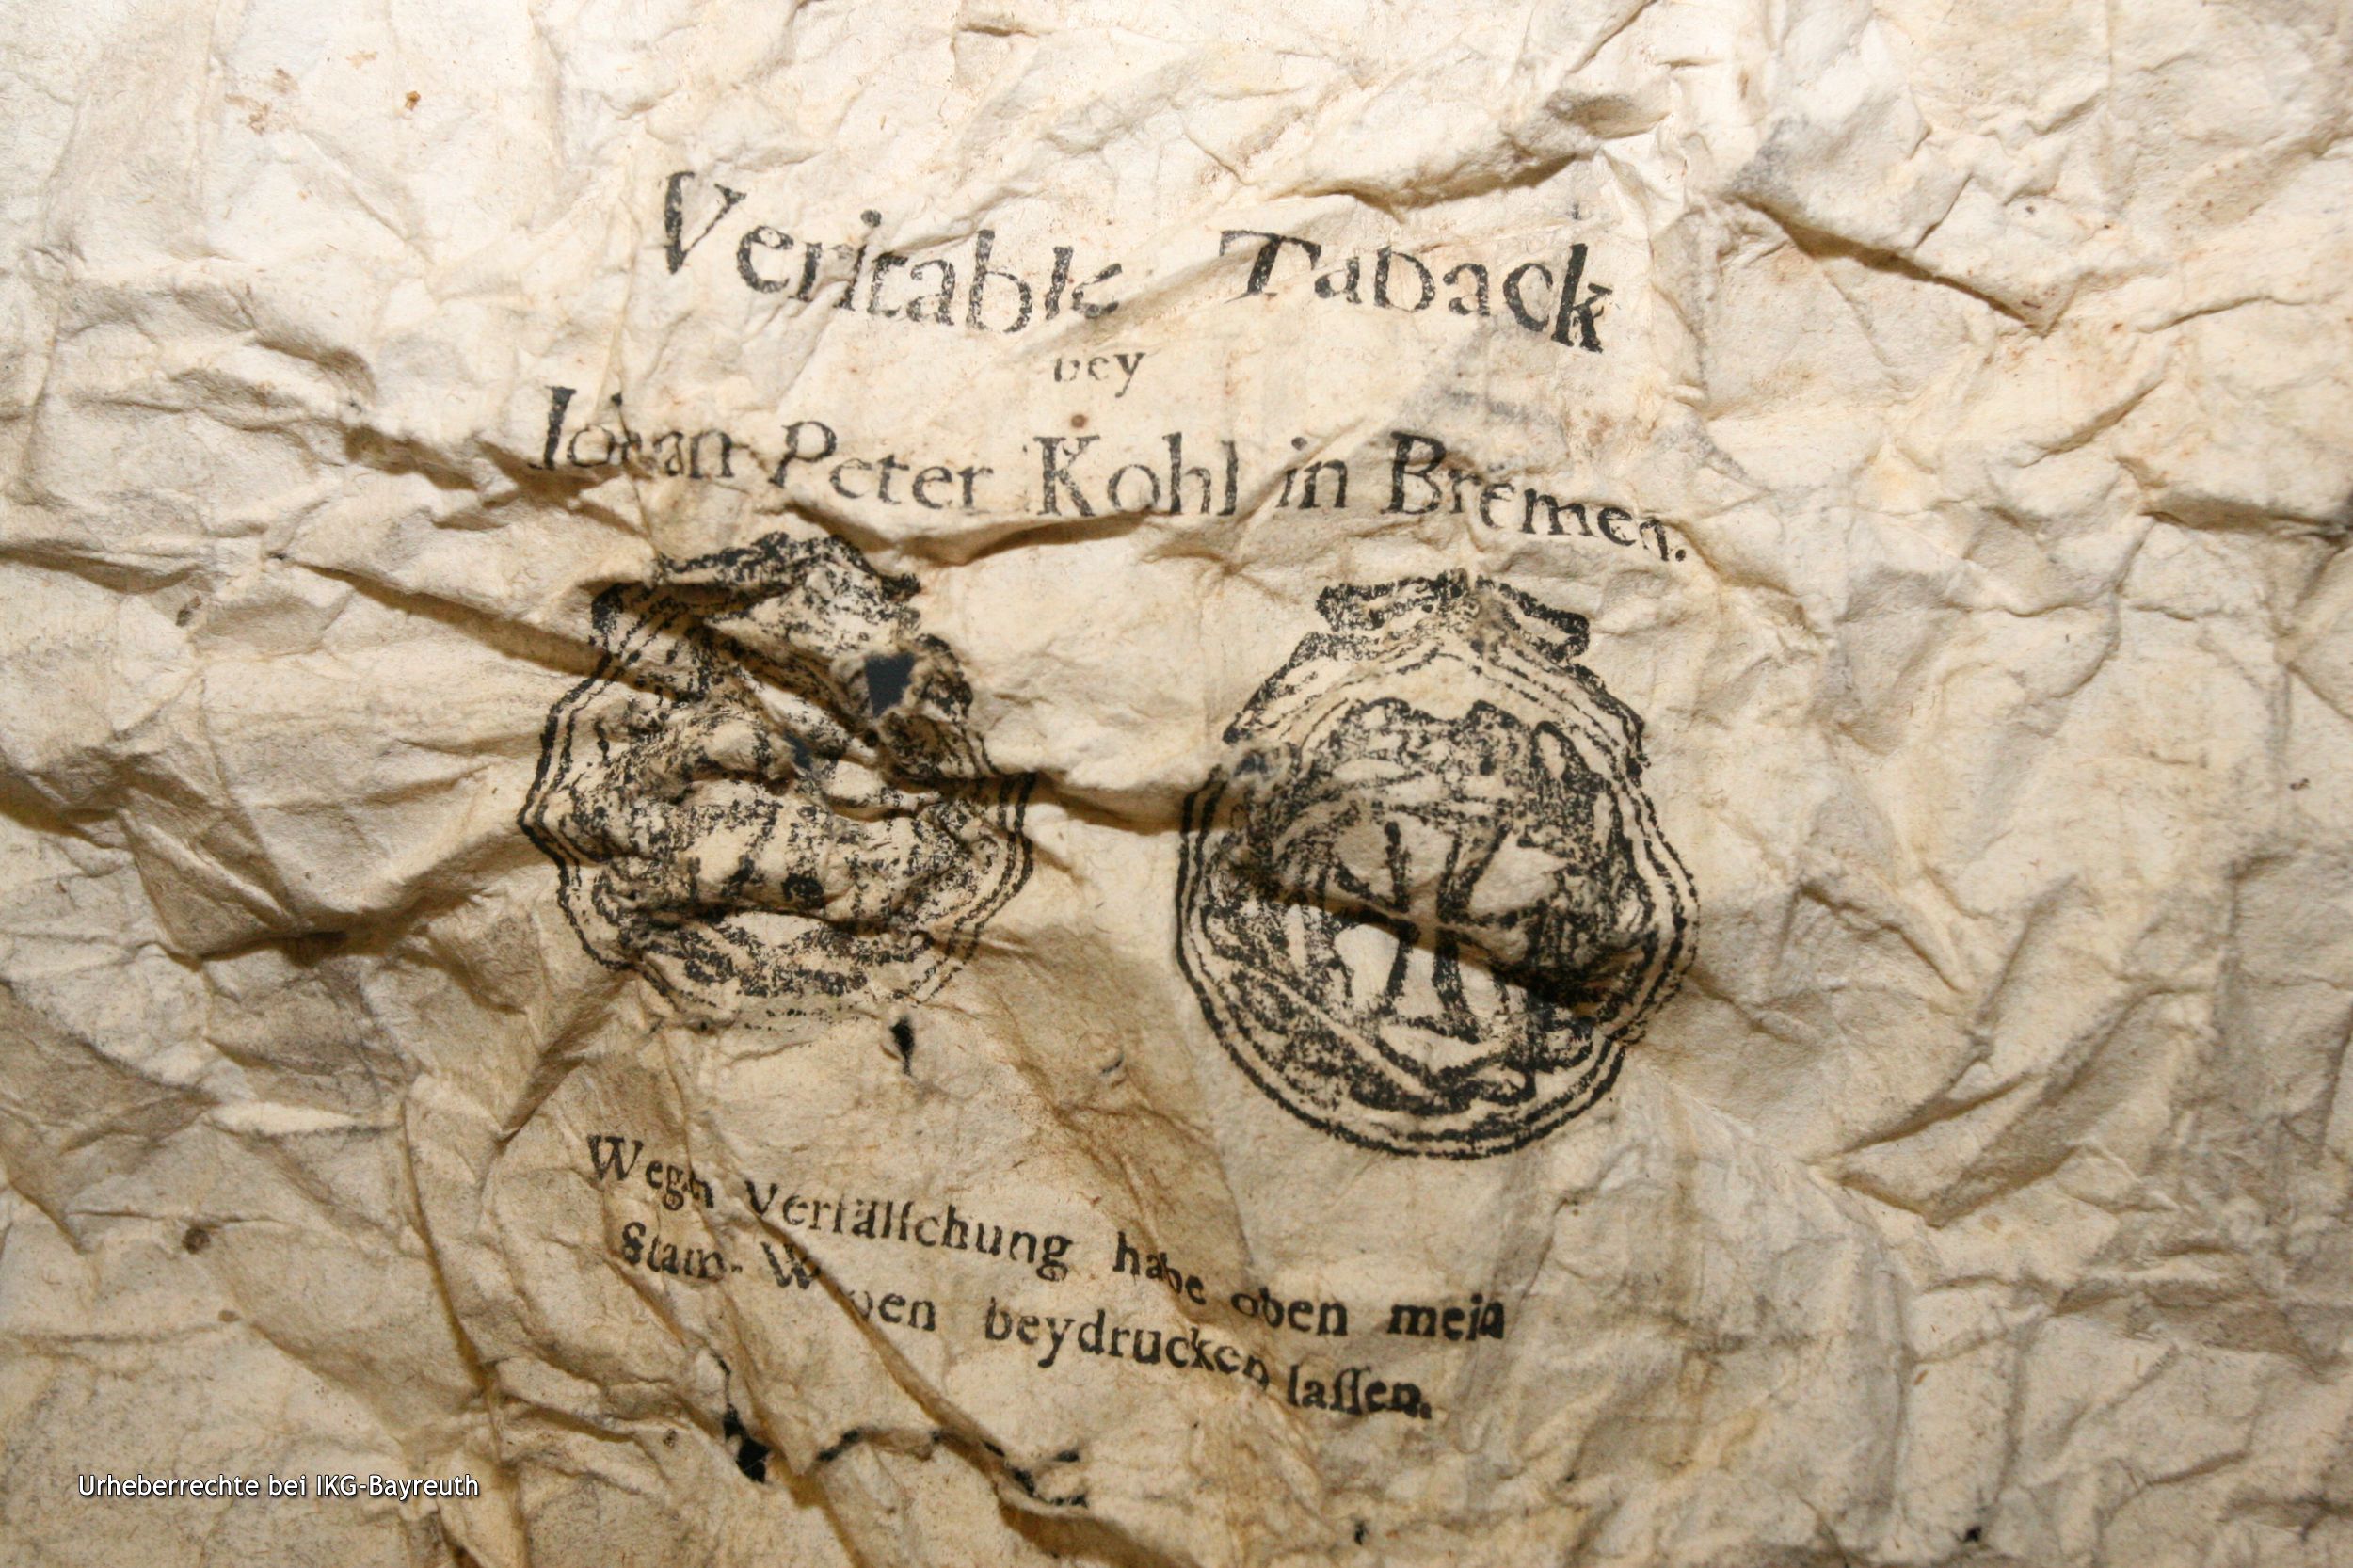 Veritable Taback
bey
Johan Peter Kohl in Bremen.
Wegen Verfälſchung habe oben mein
Stam- Wapen beydrucken laſſen.
Urheberrechte bei IKG-Bayreuth